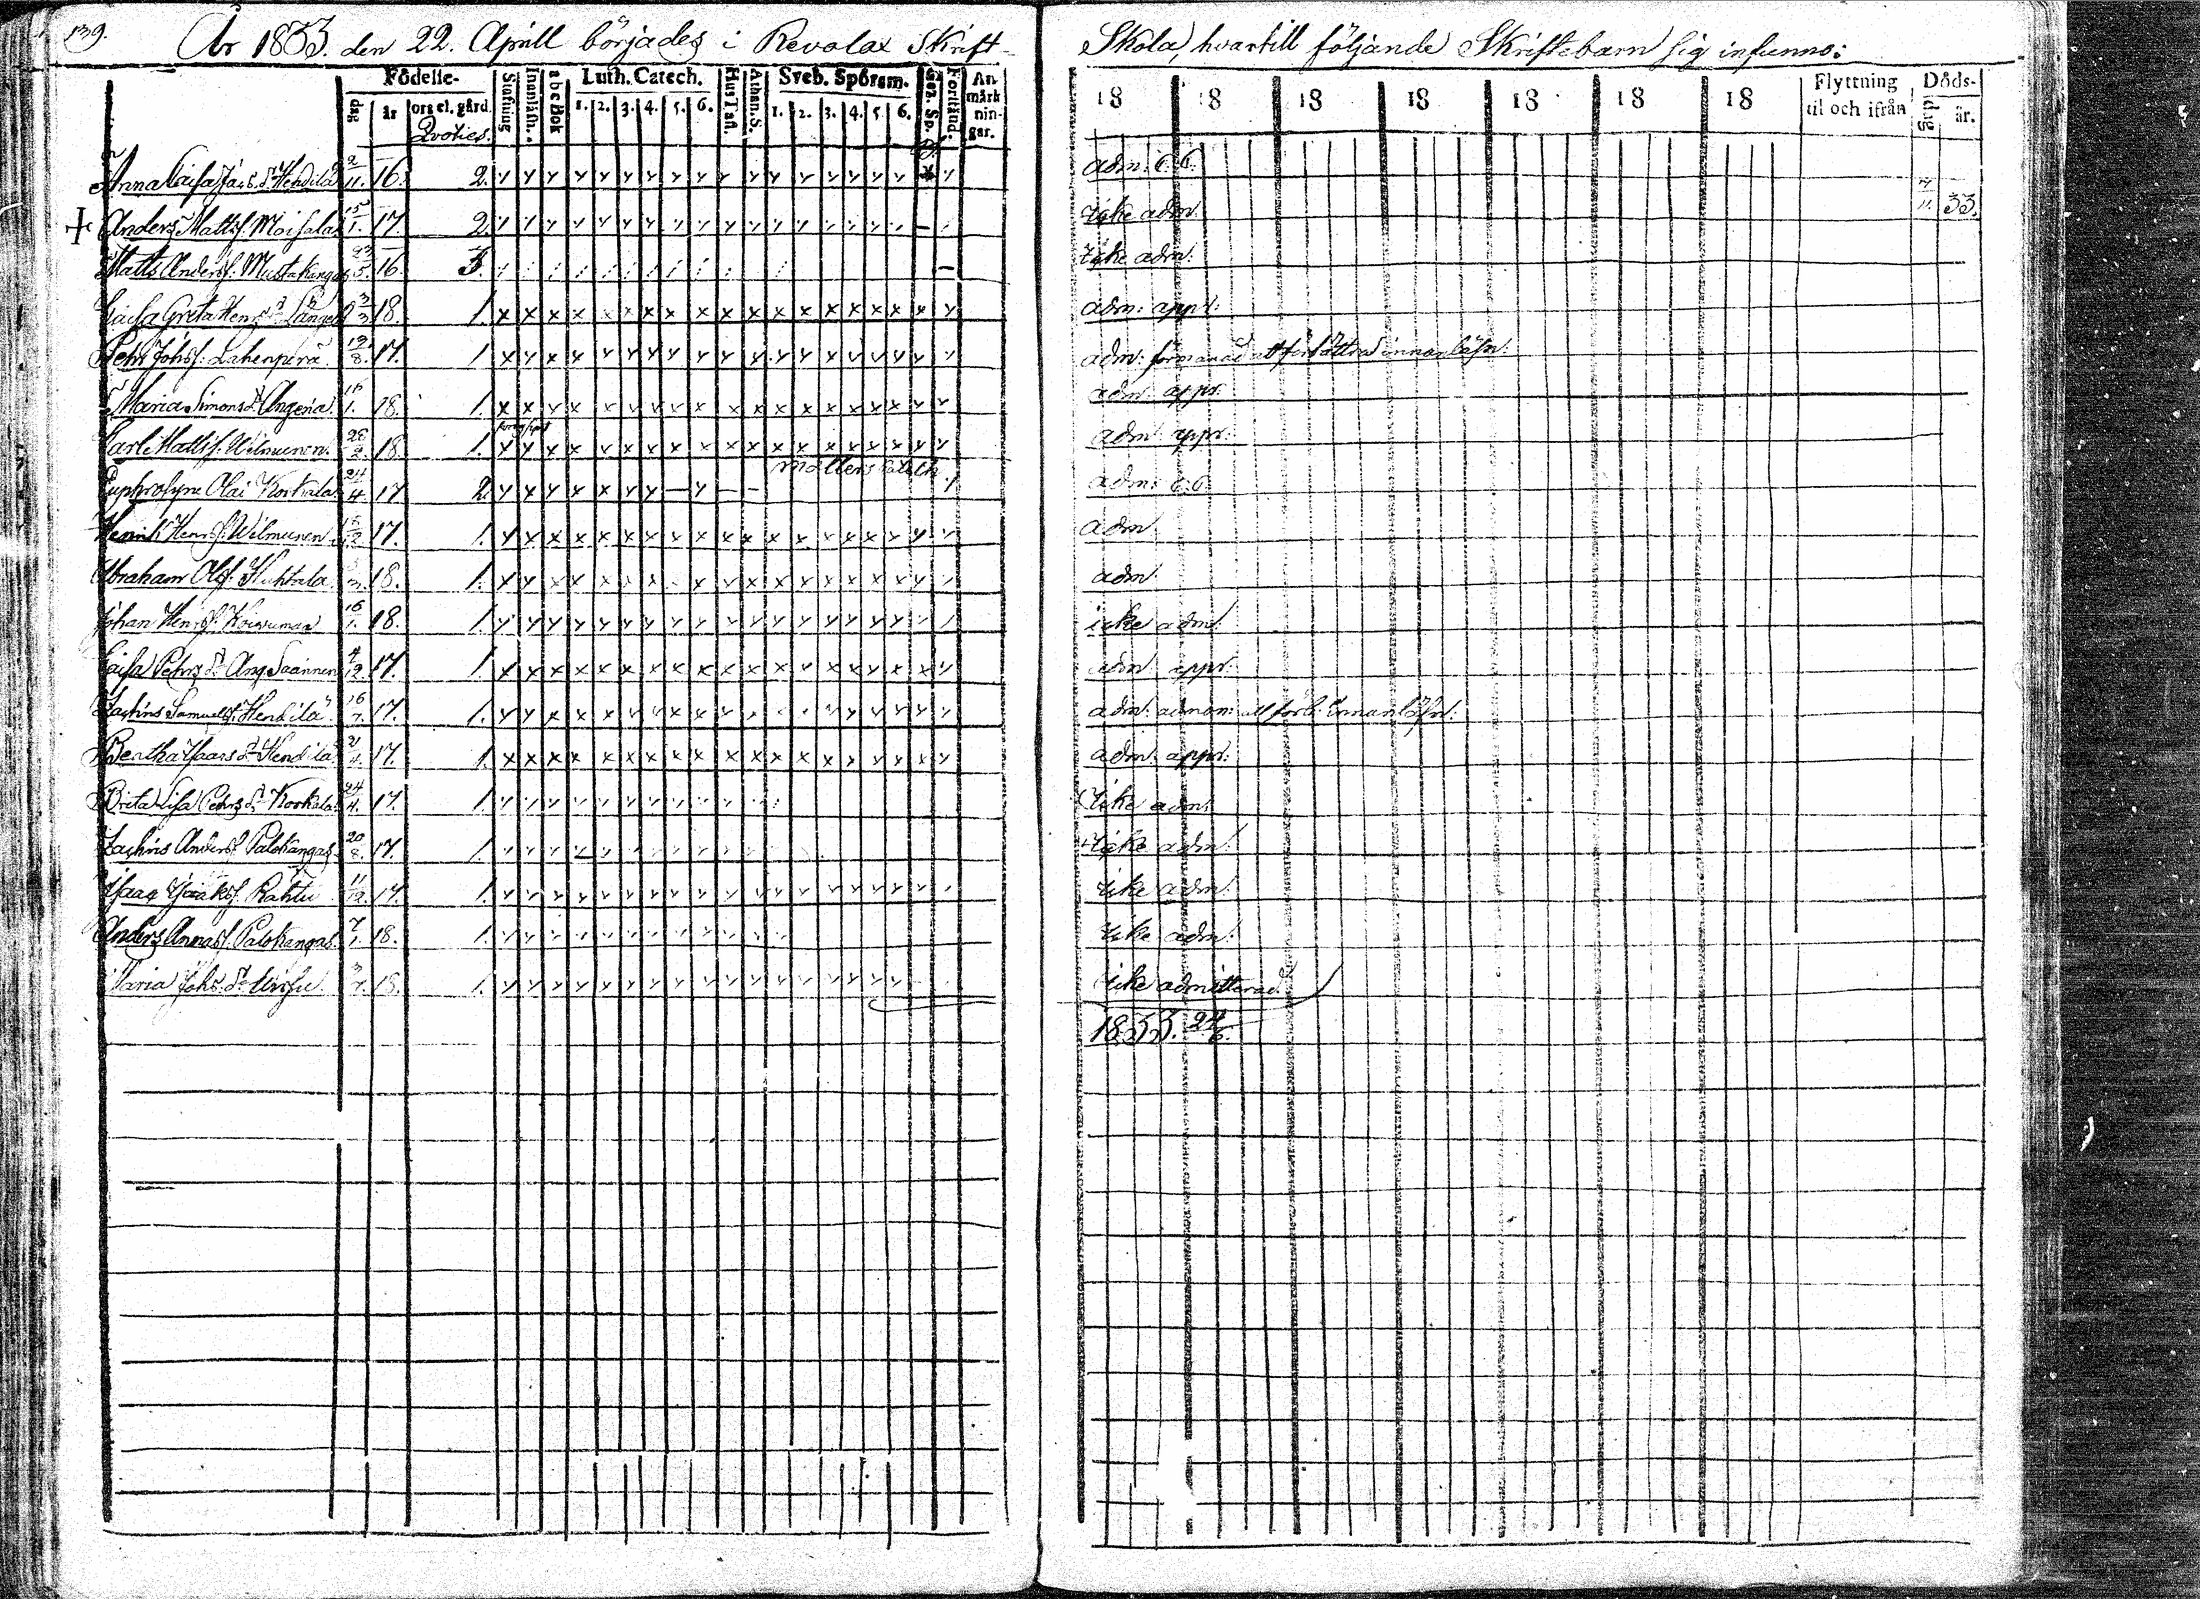 139.
År 1833. den 22. Aprill börjades i Revolax Skrift-
Skola, hvartill följande Skriftebarn sig infunno:
Födelse-
dag
år
ort el. gård.
Qvoties.
Stafning
Innanläsn.
abcBok
Luth. Catech.
1. 2. 3. 4. 5. 6.
Hus Tafl.
Athan. S.
Sveb. Spörsm.
1. 2. 3. 4. 5. 6.
Gez. Sp.
Förstånd.
An
märk
nin-
gar.
18 18 18 18 18 18 18
Flyttning
til och ifrån
Döds-
dag
år.
Anna Caisa Hendilä 2/11. 16. 2. adm:
Anders Matts s. Moisala 15/1. 17. 2. icke adm. 33.
Matts Anders s. Mustakangas 23/5. 16 3. icke adm:
Caisa Greta Henr. d. 3/3 18. 1. adm: appr:
Pehr Johs s. Lahenperä 12/8. 17. 1. adm: förmanad att förbättra innanläsn:
Maria Simons d. 1. 18. 1. adm: appr:
Carl Matts s. Wilmunen. 28/2. 18. 1. adm: appr:
Euphrosyne Olai Korkala 24/4. 17 2. Möllers Catech. adm:
Henrik Henr. s. Wilmunen 17. 1. adm
Abraham Olofs. Huhtala 3. 18. 1. adm:
Johan Henr. s. Koivuman 16/1. 18. 1. icke adm:
Caisa Pehrs d. 4/12. 17. 1. adm: appr:
Zachris Samuels s. Hendilä 16/7. 17. 1. adm: admon: att förb: innanläsn:
Bertha Isaacs d. Hendilä 17. 1. adm: appr:
Brita Lisa Pehrs d. Korkala 24/4. 17. 1. icke adm:
Zachris Anders s. Palokangas 20/8. 17. 1. icke adm:
Isaac Isaaks s. Rahtu 11/12. 17. 1. icke adm:
Anders Annas s. Palokangas. 7/1. 18. 1. icke adm:
Maria Johs. d. 3/7. 18. 1. icke admitterad
1833. 24/6.